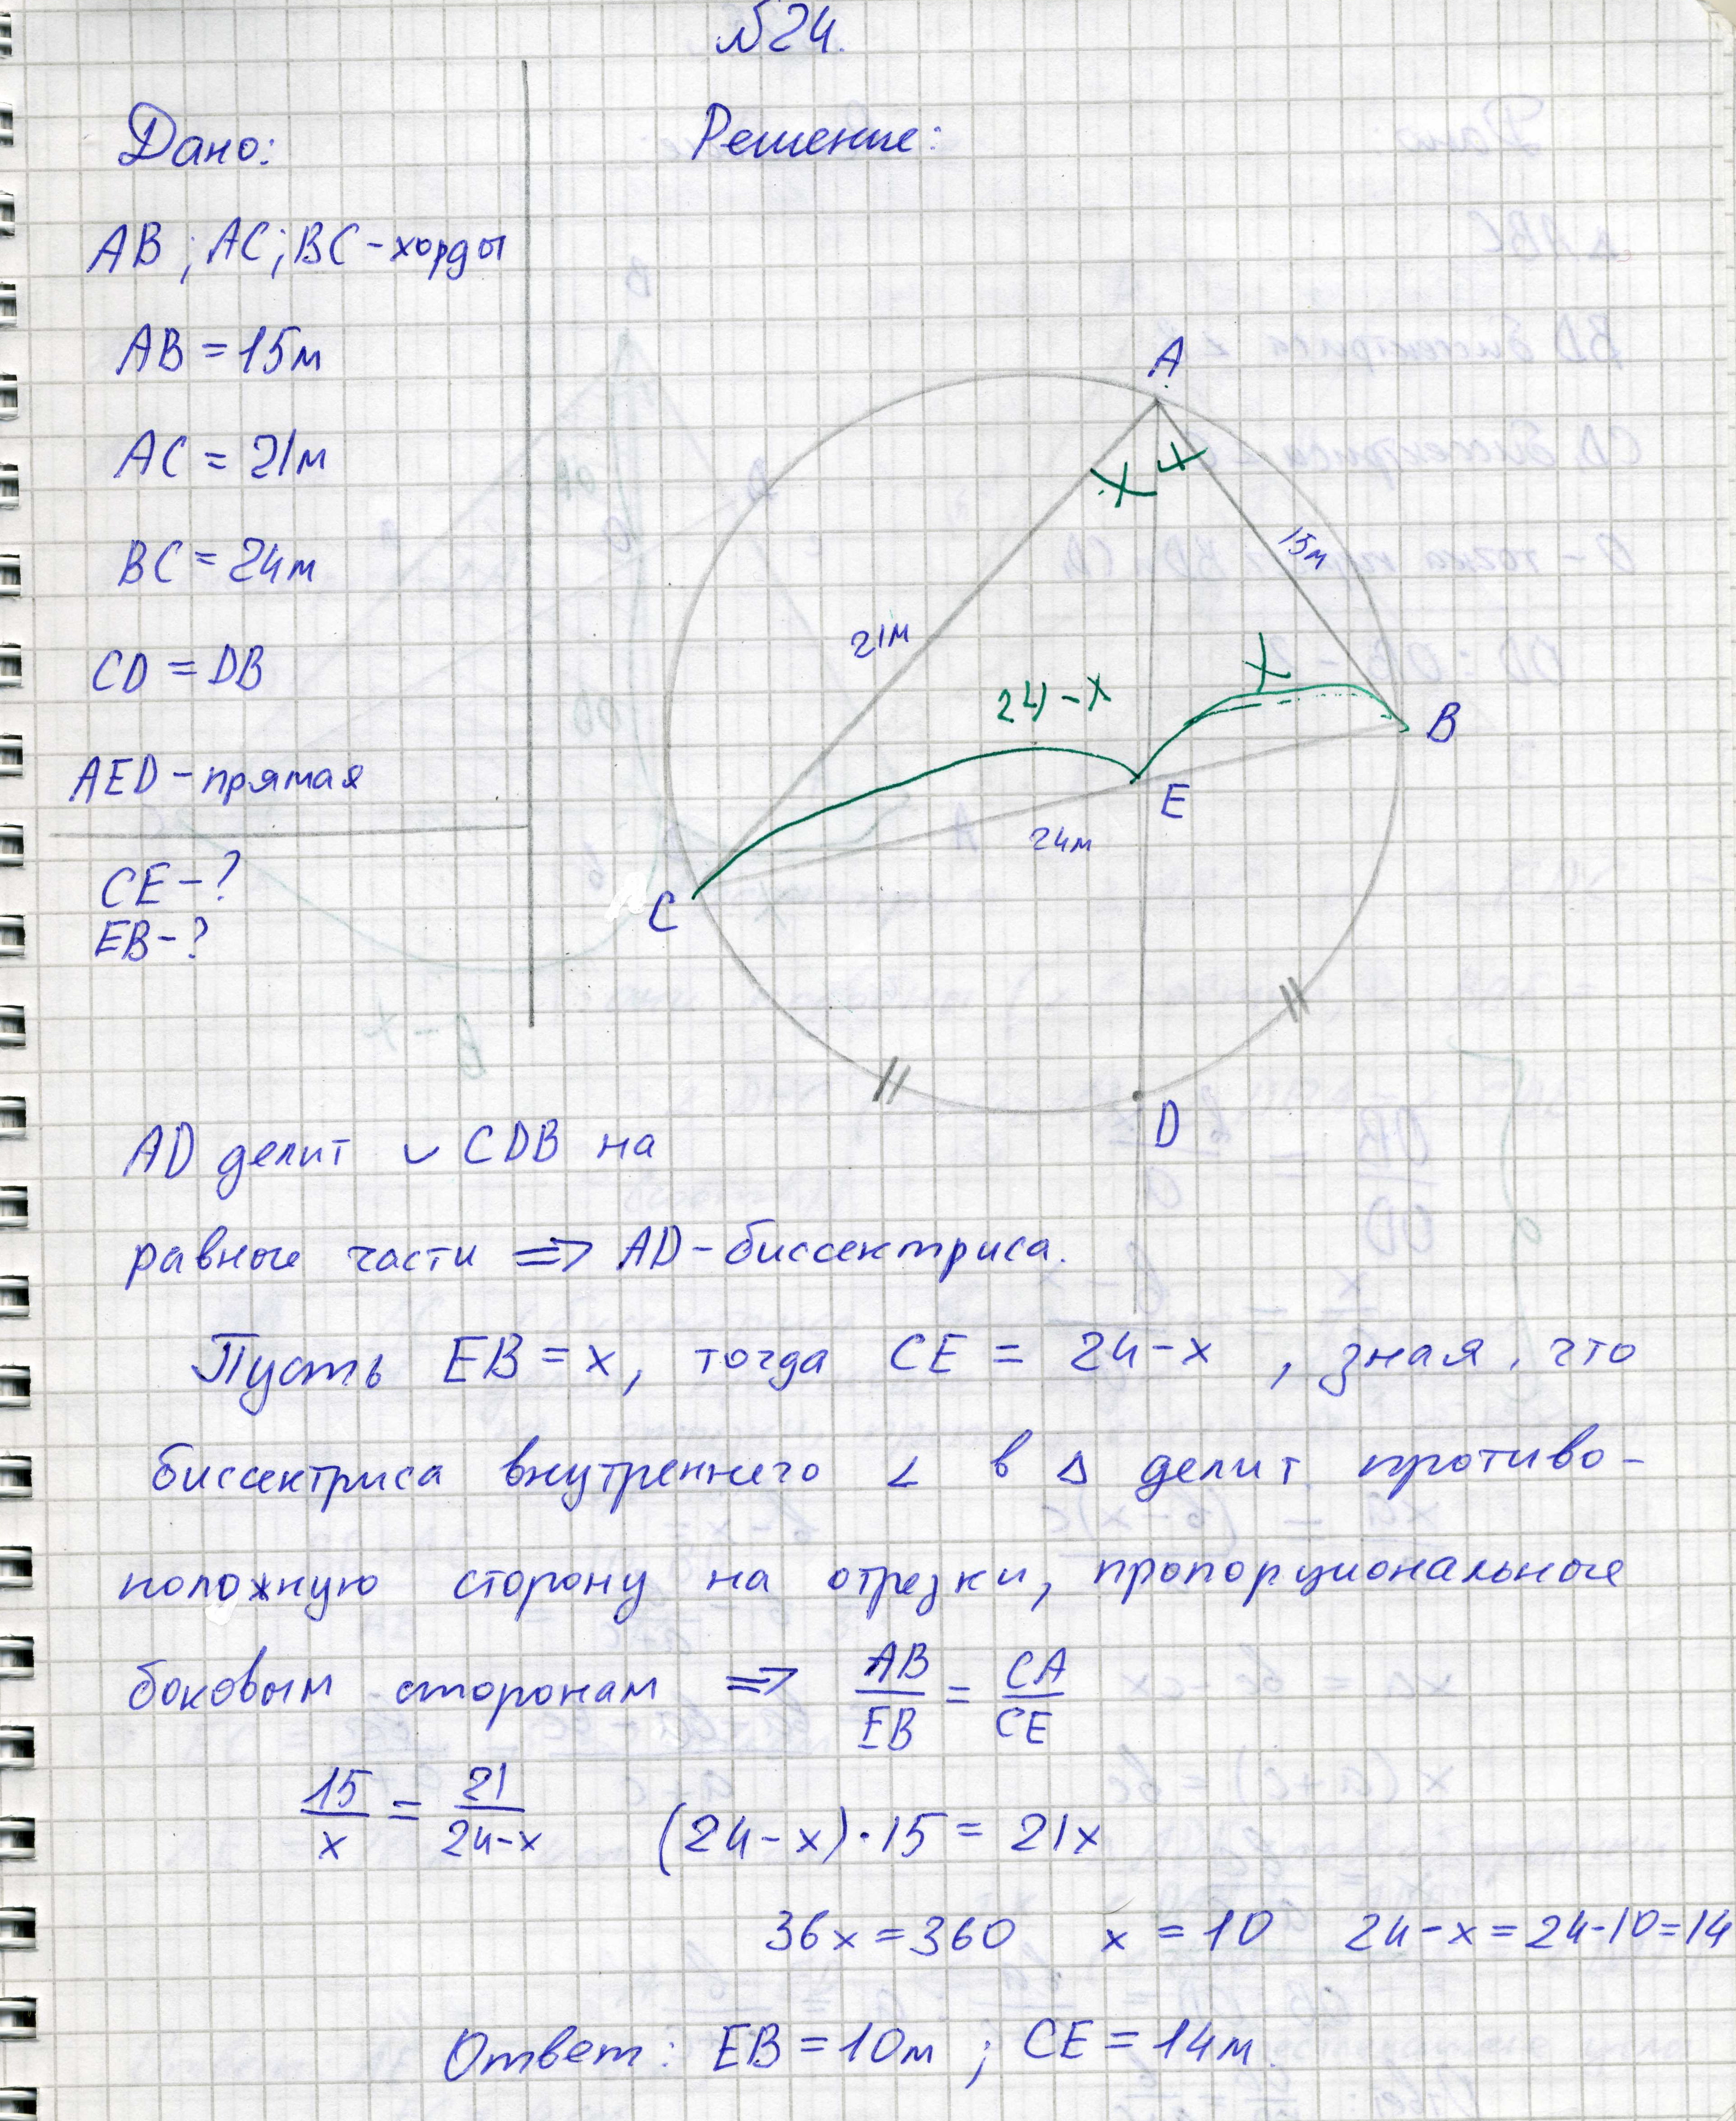 №24.
Дано:
Решение:
AB; AC; BC – хорды
AB = 15м
AC = 21м
BC = 24м
CD = DB
AED – прямая
CE – ?
EB – ?
A
15м
21м
24-x
x
B
E
24м
C
D
AD делит ◡ CDB на
равные части => AD – биссектриса.
Пусть EB = x, тогда CE = 24-x, зная, что
биссектриса внутреннего ∠ в △ делит противо-
положную сторону на отрезки, пропорциональные
боковым сторонам => AB/EB = CA/CE
15/x = 21/24-x (24-x)·15 = 21x
36x = 360 x = 10 24-x = 24-10 = 14
Ответ: EB = 10м; CE = 14м.